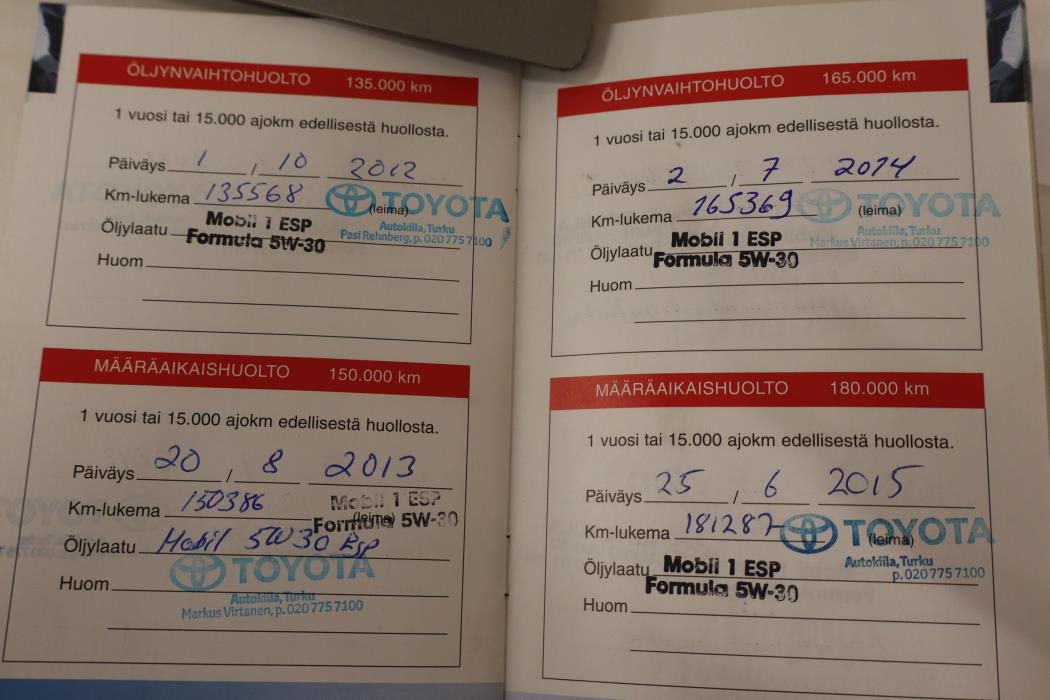 ÖLJYNVAIHTOHUOLTO 135.000 km
1 vuosi tai 15.000 ajokm edellisestä huollosta.
Päiväys 1 / 10 2012
Km-lukema 135568 TOYOTA
(leima)
Öljylaatu Mobil 1 ESP Autokiila, Turku
Formula 5W-30 Pasi Rehnberg, p. 020 775 7100
Huom
MÄÄRÄAIKAISHUOLTO 150.000 km
1 vuosi tai 15.000 ajokm edellisestä huollosta.
Päiväys 20 / 8 2013
Km-lukema 150386 Mobil 1 ESP
(leima) Formula 5W-30
Öljylaatu Mobil 5W30 Esp
TOYOTA
Huom Autokiila, Turku
Markus Virtanen, p. 020 775 7100
ÖLJYNVAIHTOHUOLTO 165.000 km
1 vuosi tai 15.000 ajokm edellisestä huollosta.
Päiväys 2 / 7 2014
Km-lukema 165369 TOYOTA
(leima)
Öljylaatu Mobil 1 ESP Autokiila, Turku
Formula 5W-30 Markus Virtanen, p. 020 775 7100
Huom
MÄÄRÄAIKAISHUOLTO 180.000 km
1 vuosi tai 15.000 ajokm edellisestä huollosta.
Päiväys 25 / 6 2015
Km-lukema 181287 TOYOTA
(leima)
Öljylaatu Mobil 1 ESP Autokiila, Turku
Formula 5W-30 p. 020 775 7100
Huom